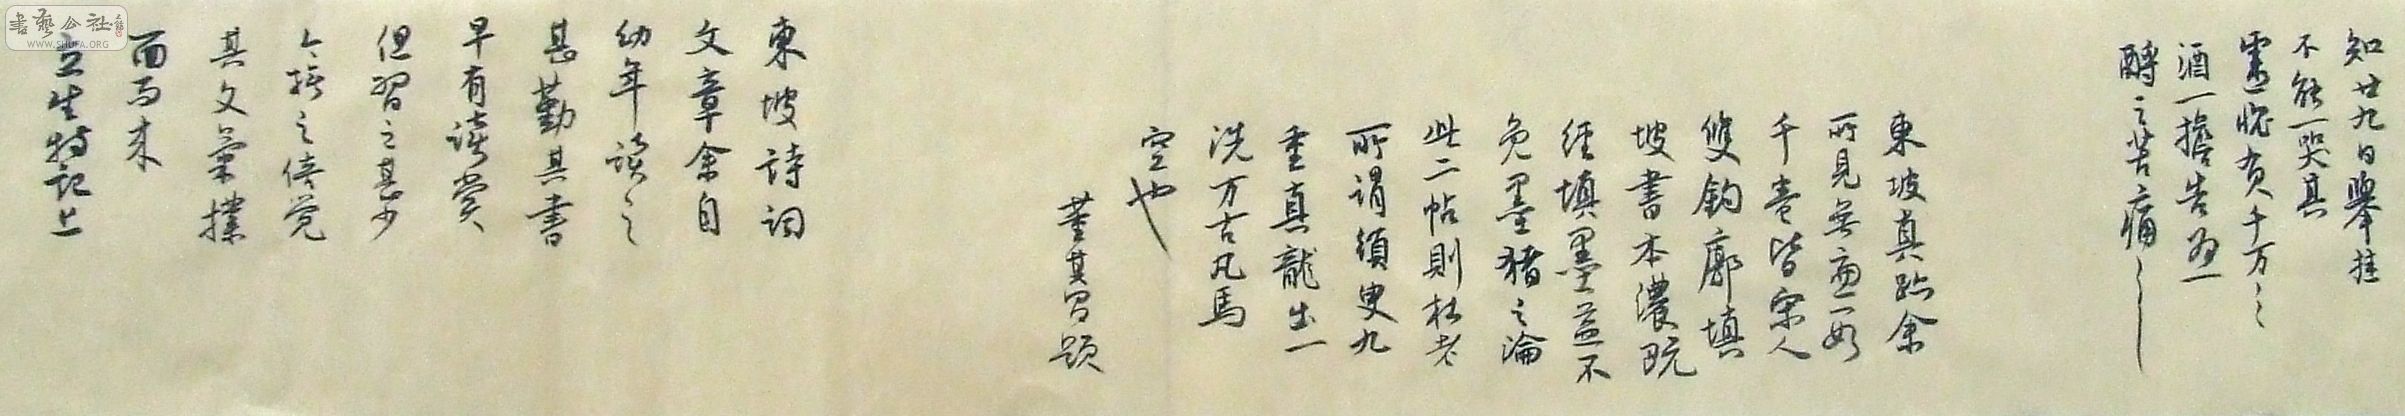 知廿九日舉挂
不能一哭其
靈愧負千万〻
酒一擔告為一
酹之苦痛〻
東坡真跡余
所見無慮數
千卷皆宋人
雙鈎廓填
坡書本濃既
經填墨益不
免墨猪之論
此二帖則杜老
所謂須臾九
重真龍出一
洗万古凡馬
空也
董其昌題
東坡詩詞
文章余自
幼年读之
甚勤其書
早有读賞
但習之甚少
今接之使觉
其文氣撲
面而来
立生特記上
書藝公社
WWW.SHUFA.ORG